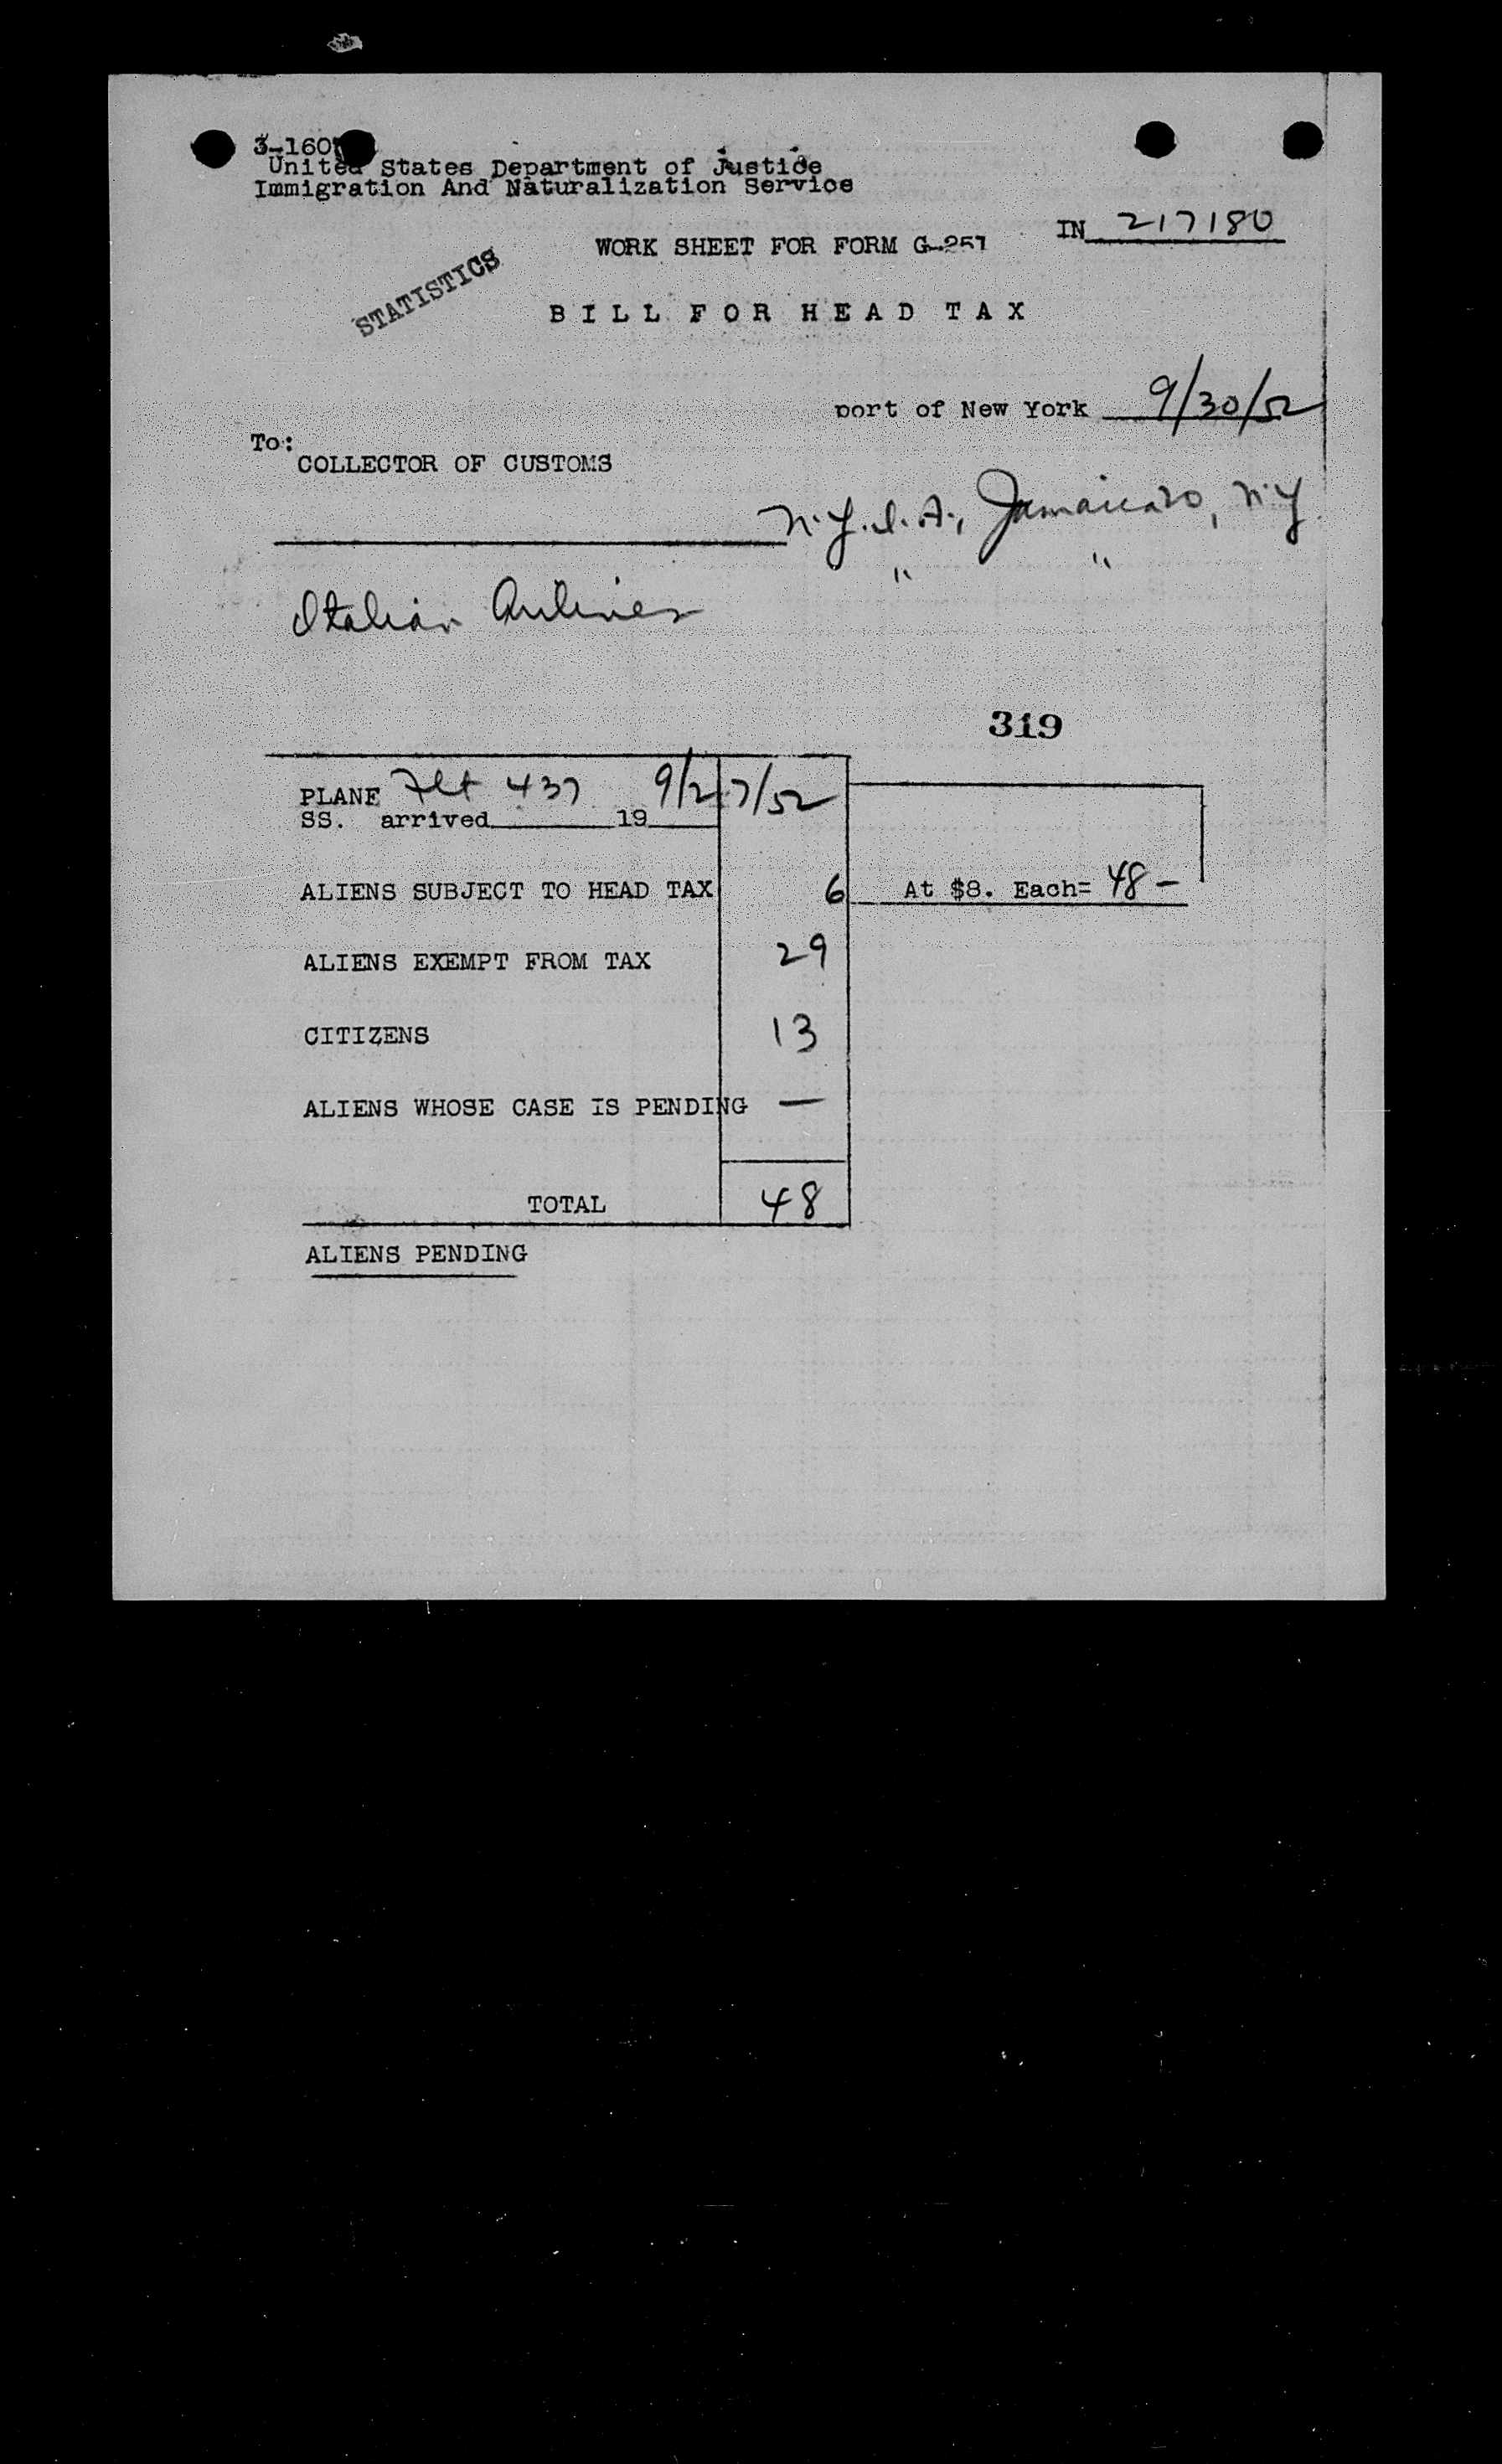 3-160
United States Department of Justice
Immigration And Naturalization Service
IN 217180
WORK SHEET FOR FORM G-251
STATISTICS
BILL FOR HEAD TAX
port of New York 9/30/52
To:
COLLECTOR OF CUSTOMS
N.Y.I.A., Jamaica 20, N.Y.
" "
Italian Airlines
319
PLANE Flt 437 9/27/52
SS. arrived 19
ALIENS SUBJECT TO HEAD TAX 6 At $8. Each= 48 –
ALIENS EXEMPT FROM TAX 29
CITIZENS 13
ALIENS WHOSE CASE IS PENDING —
TOTAL 48
ALIENS PENDING